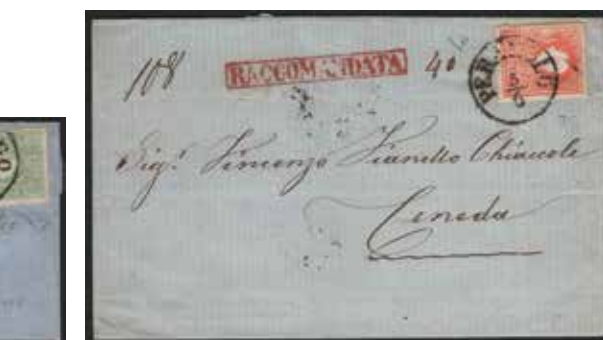 108 RACCOMANDATA 40
Sig.r Vincenzo Vianello Chiaccole
Ceneda